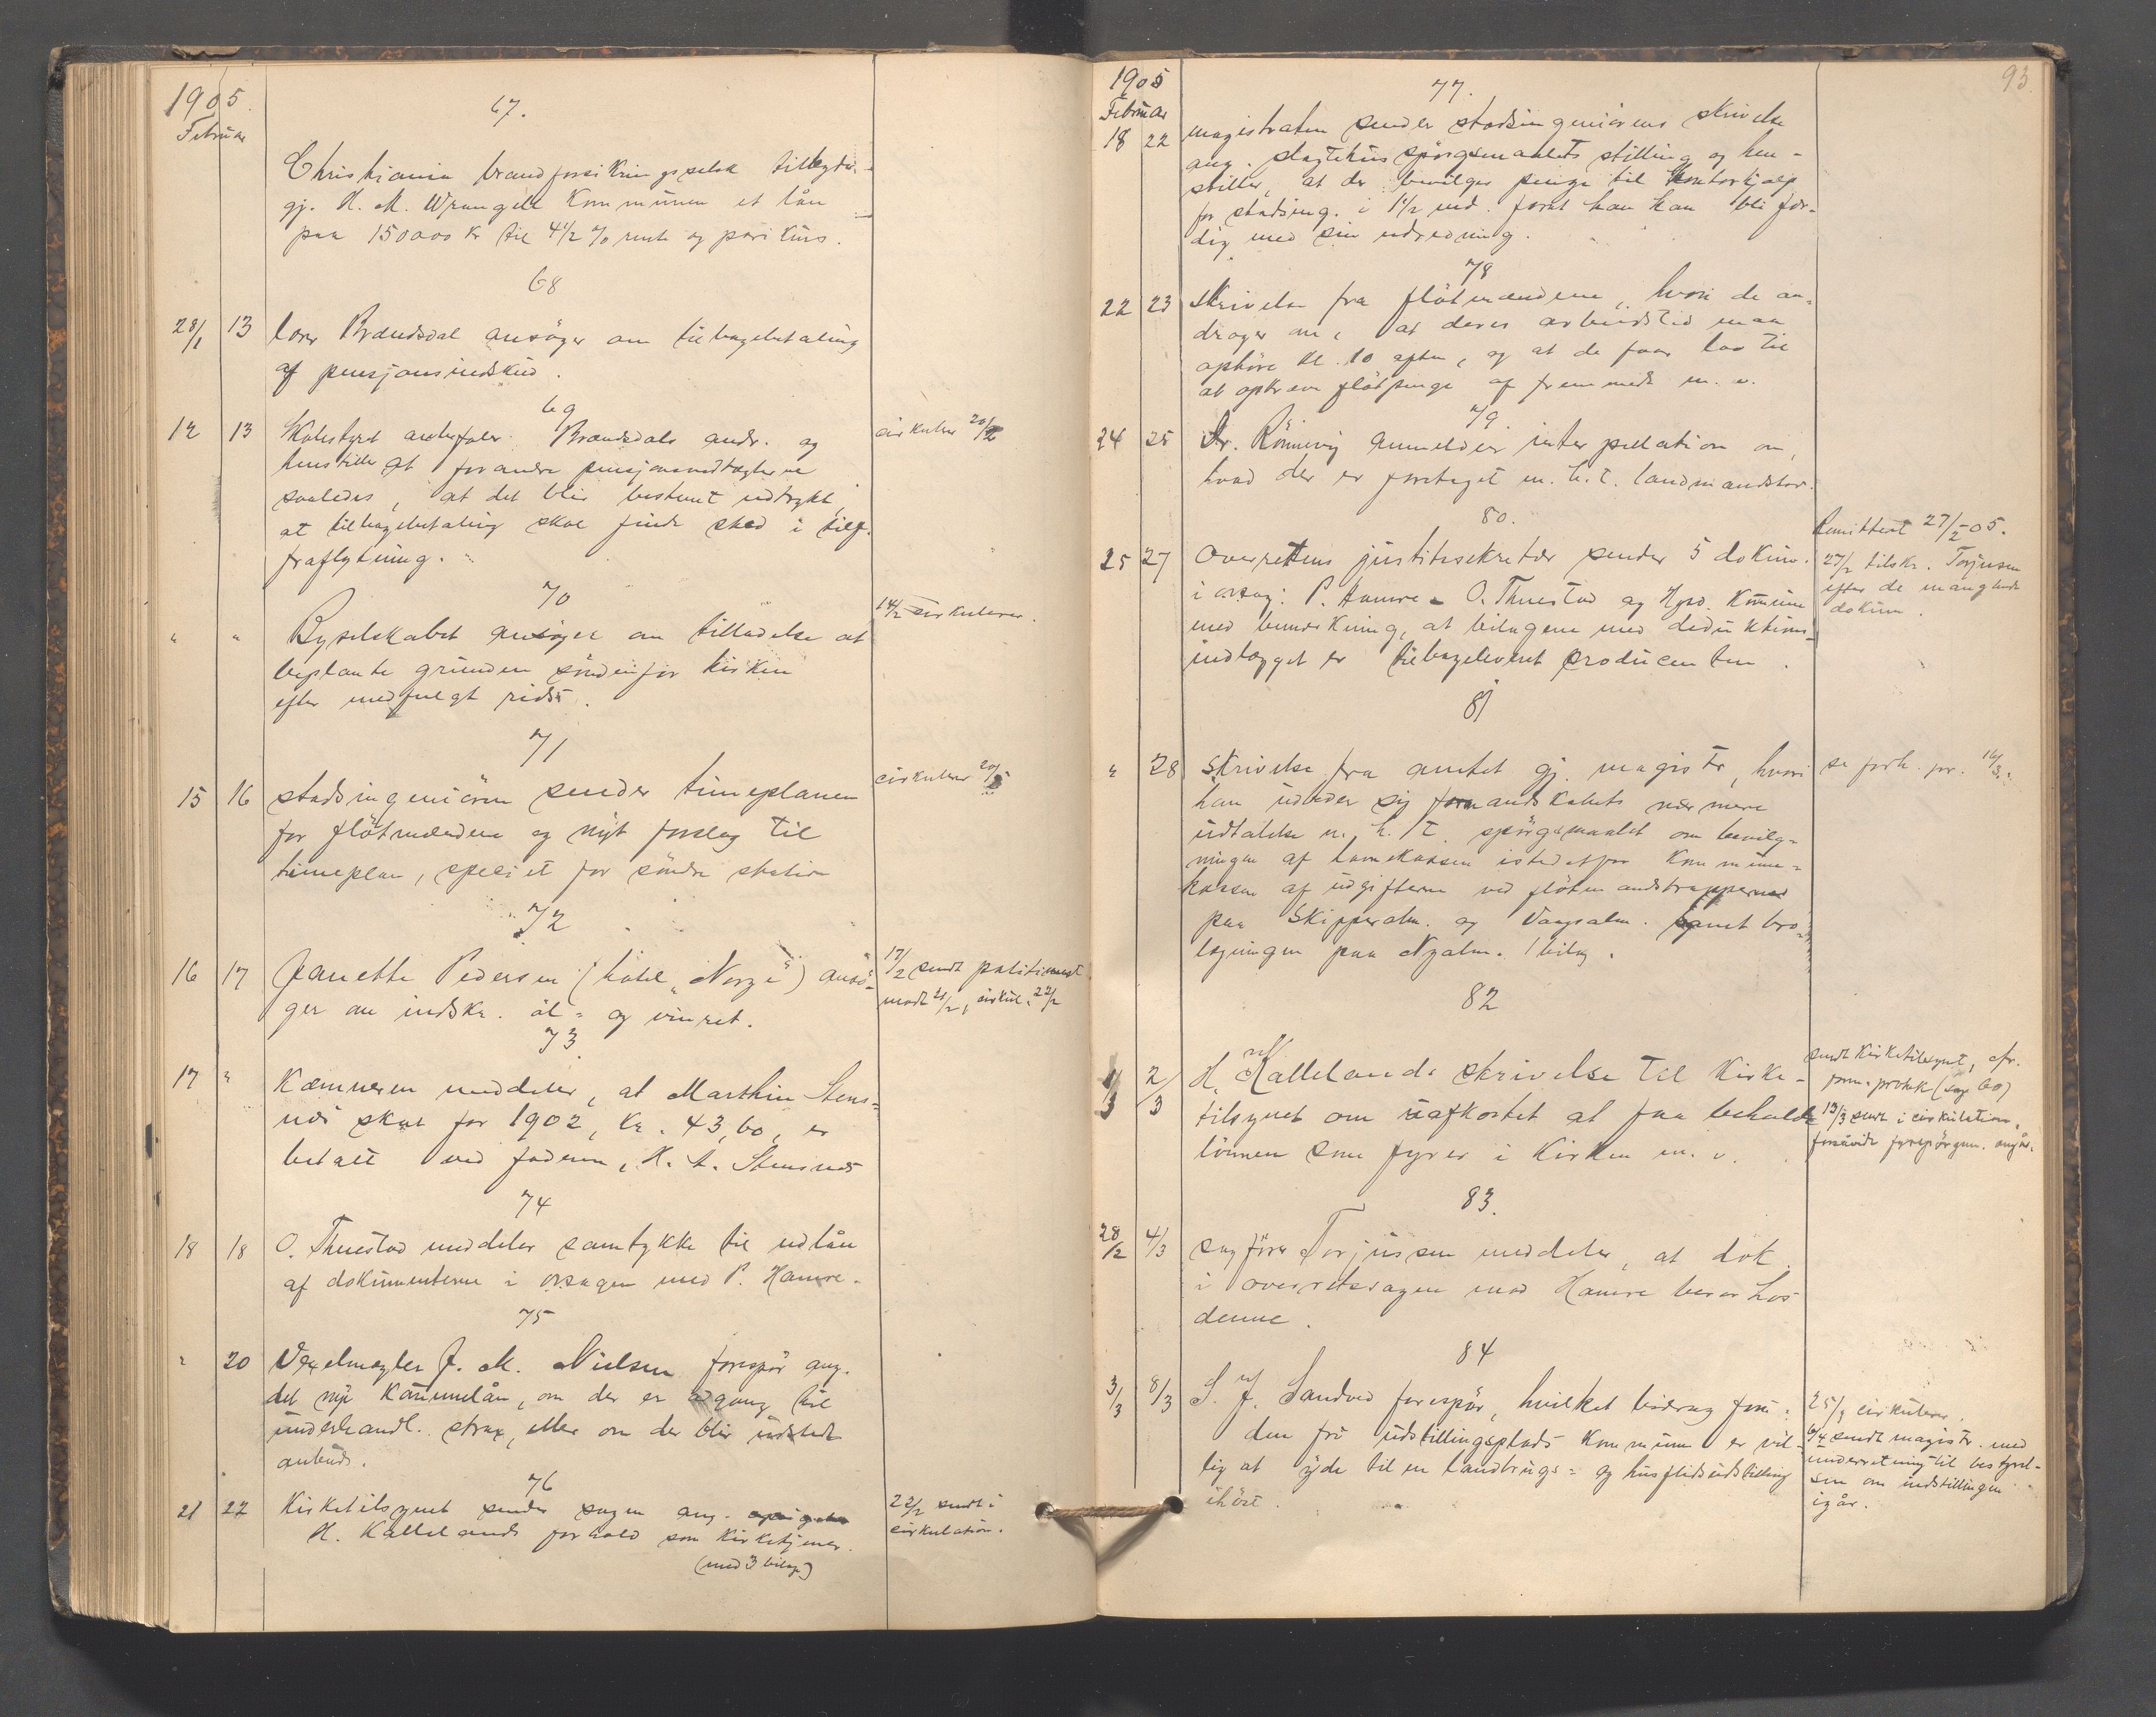 1905.
Februar
67.
Christiania brandforsikringsselsk tilbyder
gj. H. M. Wrangell kommunen et lån
paa 150000 kr til 4 1/2 % rente og parikurs.
68
28/1 13 lærer Brændsdal ansöger om tilbagebetaling
af pensjonsindskud.
69
12 13 Skolestyret anbefaler Brændsdals andr. og cirkulerer 20/2
henstiller at forandre pensjonsvedtægterne
saaledes, at det blir bestemt udtrykt,
at tilbagebetaling skal finde sted i tilf.
fraflytning.
70
" " Byselskabet ansöger om tilladelse at 14/2 cirkulerer.
beplante grunden söndenfor kirken
efter medfulgt rids.
71
15 16 stadsingeniören sender timeplanen cirkulerer 20/2
for flötmændene og nyt forslag til
timeplan, specielt for söndre station
72
16 17 Janette Pedersen (hotel "Norge") ansö- 17/2 sendt politimest
ger om indskr. öl- og vinret. modt 21/2, cirkul. 22/2
73.
17 " Kæmneren meddeler, at Marthin Stens-
næs skat for 1902, kr. 43,60, er
betalt ved faderen, H. A. Stensnæs
74
18 18 O. Thuestad meddeler samtykke til udlån
af dokumenterne i orsagen med P. Hamre.
75
" 20 Vexelmægler J. M. Nielsen forespör ang.
det nye kommunelån, om der er adgang til
underhandl. strax, eller om der blir udstedt
anbud.
76
21 22 Kirketilsynet sender sagen ang. 22/2 sendt i
H. Kallelands forhold som kirketjener. cirkulation.
(med 3 bilag)
1905 93.
Februar
77.
18 22 magistraten sender stadsingeniörens skrivelse
ang. slagtehusspörgsmaalets stilling og hen-
stiller, at der bevilges penge til kontorhjælp
for stadsing. i 1 1/2 md. forat han kan bli fær-
dig med sin udredning.
78
22 23 Skrivelse fra flötmændene, hvori de an-
drager om, at deres arbeidstid maa
ophöre kl. 10 aften, og at de faar lov til
at opkræve flötpenge af fremmede m. v.
79.
24 25 Dr. Rönnevig anmelder interpellation om,
hvad der er foretaget m. h. t. landmandstor.
80.
25 27 Overrettens justitssekretær sender 5 dokum. Remittert 27/2 05.
i orsag: P. Hamre - O. Thuestad og Hgsd. kommune 27/2 tilskr. Torjusen
med bemerkning, at bilagene med deduktions- efter de manglende
indlægget er tilbageleveret producenten. dokum.
81
" 28 Skrivelse fra amtet gj. magistr, hvori se forh. pr. 16/3.
han udbeder sig formandskabets nærmere
udtalelse m. h. t. spörgsmaalet om bevilg-
ningen af havnekassen istedetfor kommune-
kassen af udgifterne ved flötmandstrapperne
paa Skipperalm. og Vaagsalm. samt bro-
lægningen paa Nyalm. 1 bilag.
82
1/3 2/3 H. Kallelands skrivelse til kirke- sendt kirketilsynet, cfr.
tilsynet om uafkortet at faa beholde form. protok (sag 60)
lönnen som fyrer i kirken m. v. 13/3 sendt i cirkulation,
forsåvidt fyrspörgsm. angår.
83.
28/2 4/3 sagförer Torjussen meddeler, at dok.
i overretssagen mod Hamre beror hos
denne.
84
3/3 8/3 S. J. Sandved forespör, hvilket bidrag foru- 25/3 cirkulerer.
den fri udstillingsplads kommunen er vil- 6/4 sendt magistr. med
lig at yde til en landbrugs- og husflidsudstilling underretning til bestyrel-
ihöst. sen om indstillingen
igår.